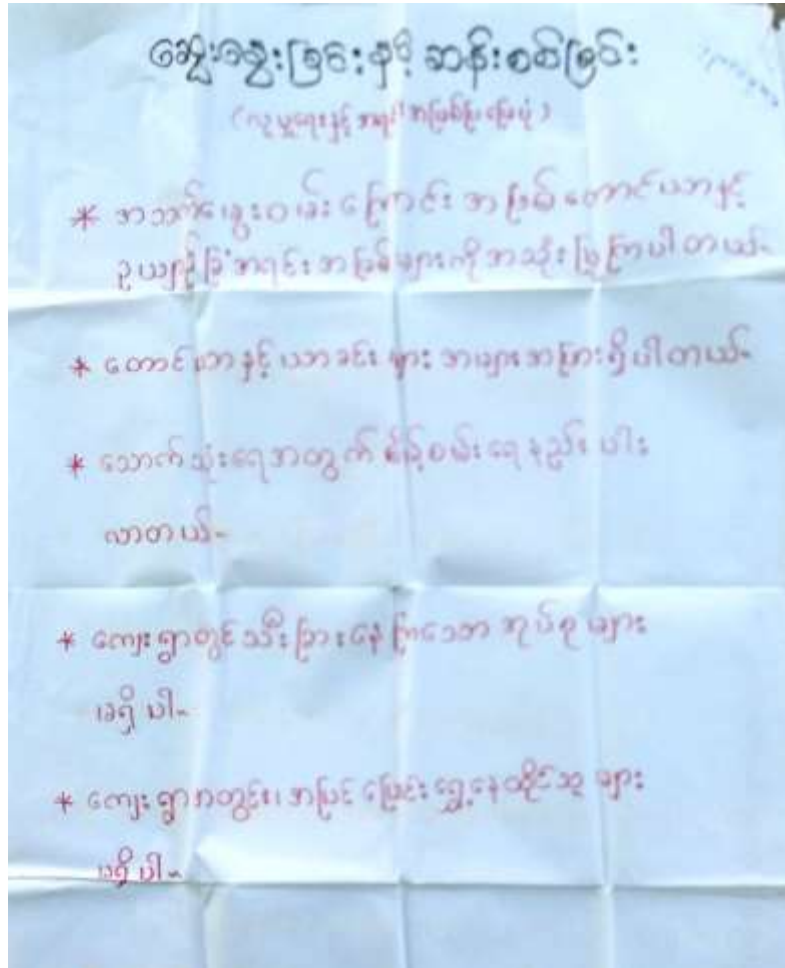 ဆွေးနွေးခြင်းနှင့် ဆန်းစစ်ခြင်း
(လူမှုရေးနှင့် အရင်းအမြစ်ပြမြေပုံ)
* အသက်မွေးဝမ်းကြောင်း အဖြစ် တောင်ယာနှင့်
ဥယျာဉ်ခြံအရင်းအမြစ်များကိုအသုံးပြုကြပါတယ်။
* တောင်ယာနှင့် ယာခင်းများ အများအပြားရှိပါတယ်။
* သောက်သုံးရေအတွက် စိမ့်စမ်းရေနည်းပါး
လာတယ်။
* ကျေးရွာတွင် သီးခြားနေကြသော အုပ်စုများ
မရှိပါ။
* ကျေးရွာအတွင်း၊ အပြင် ပြောင်းရွှေ့နေထိုင်သူများ
မရှိပါ။